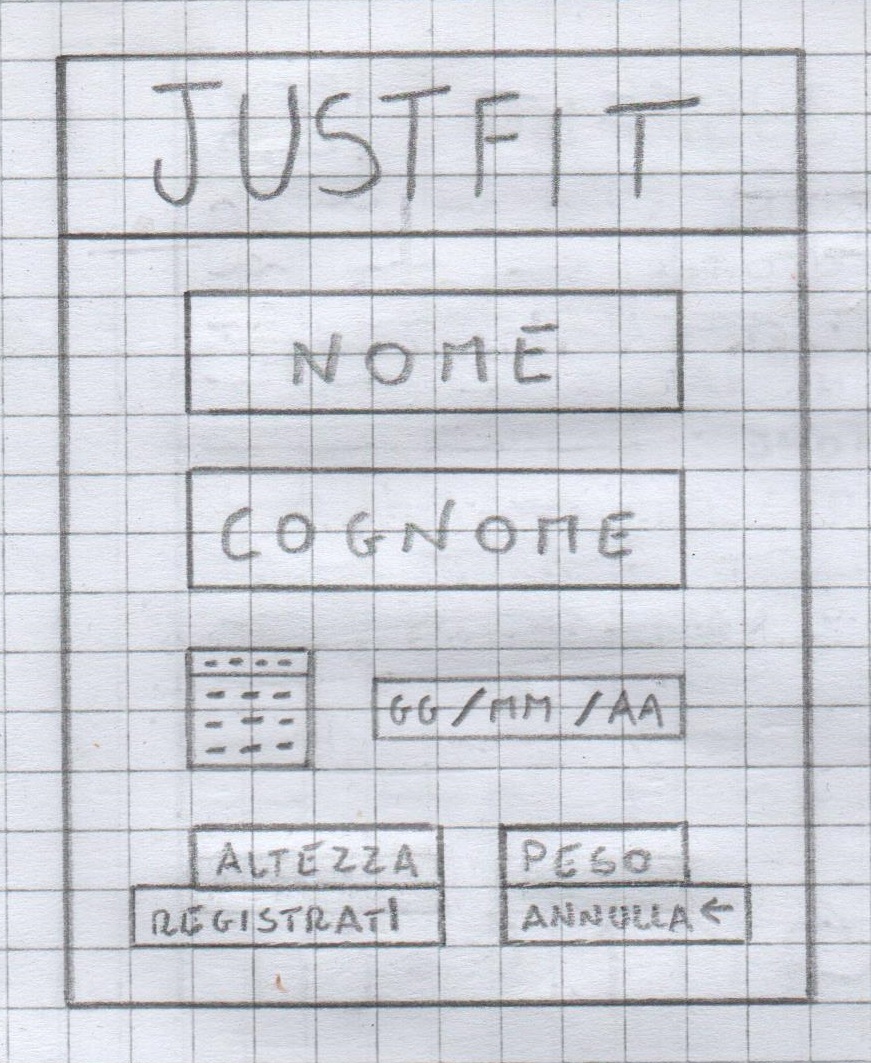 JUSTFIT
NOME
COGNOME
GG/MM/AA
ALTEZZA PESO
REGISTRATI ANNULLA ←